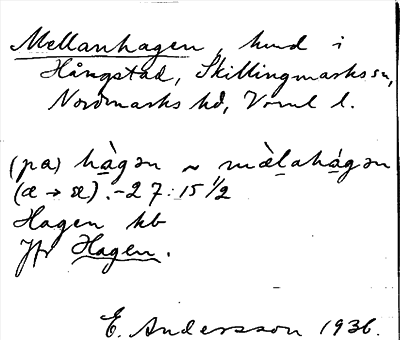 Mellanhagen, hmd i
Hångstad, Skillingmarks sn,
Nordmarks hd, Vrml l.
(pa) hàgən ~ mæ̀lahágən
(æ → æ) .-27:15 1/2
Hagen kb
Jfr Hagen.
E. Andersson 1936.